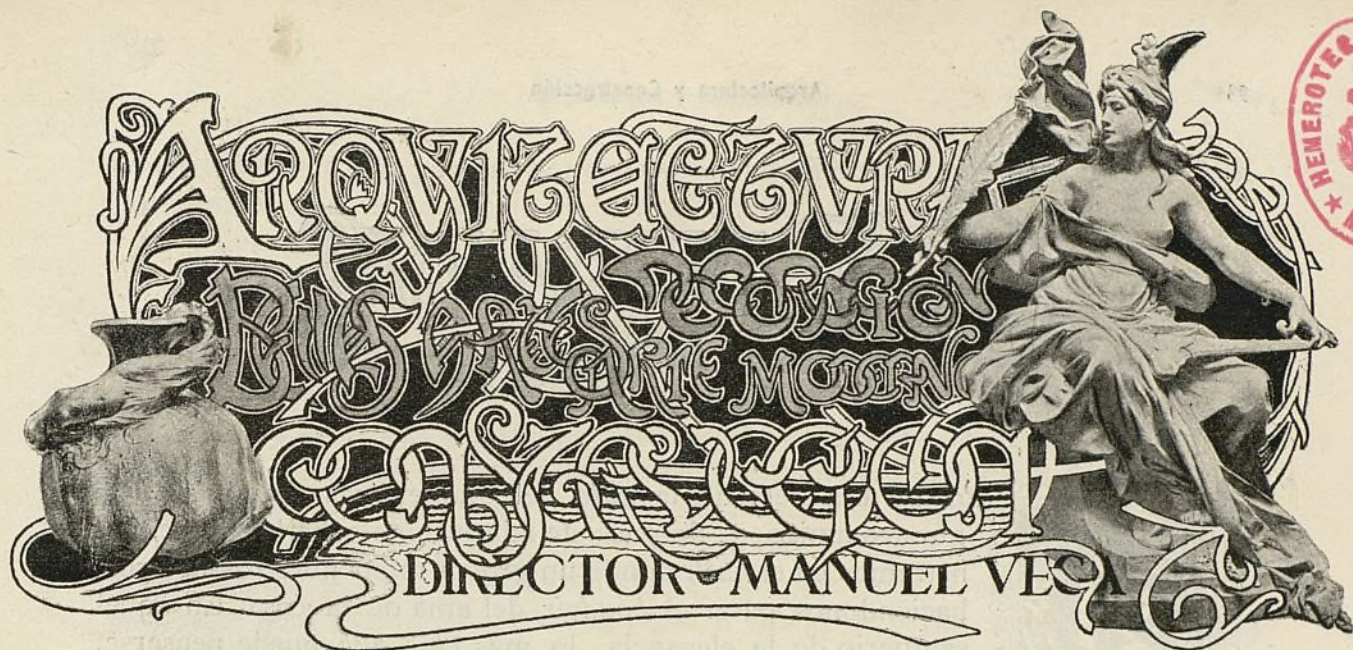 ARQVITECTVRA
BELLAS ARTES DECORACION
ARTE MODERNO
CONSTRUCCION
DIRECTOR MANUEL VEGA
HEMEROTEC